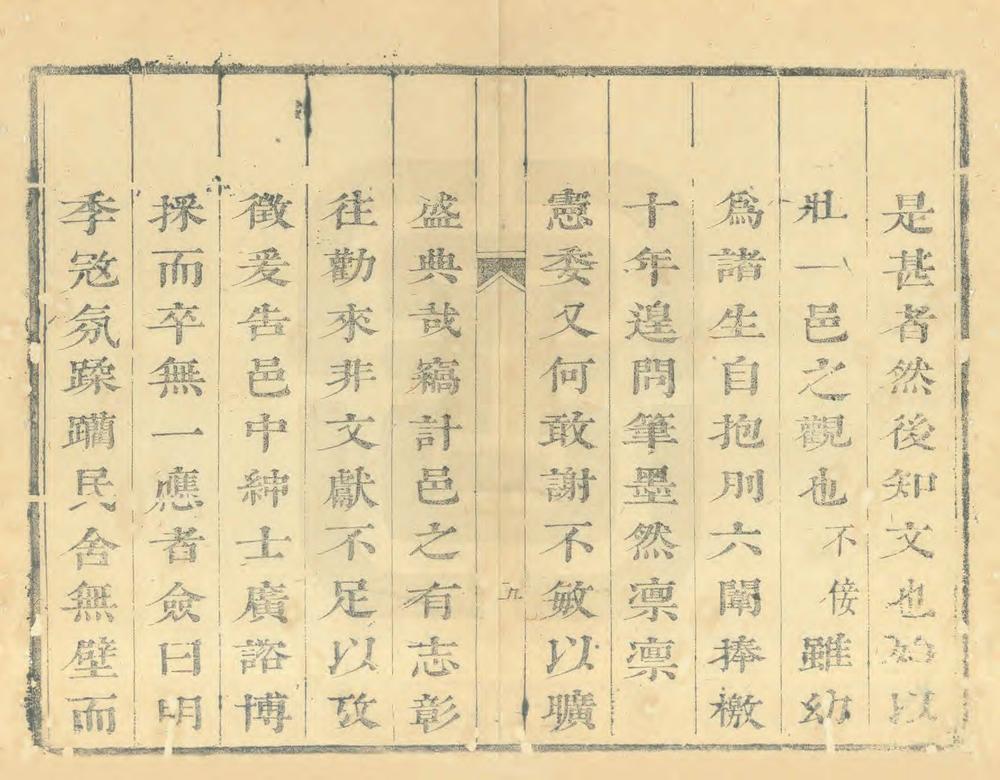 是甚者然後知文也始以
壯一邑之觀也不倿雖幼
爲諸生自抱刖六闈捧檄
十年遑問筆墨然凛凛
憲委又何敢謝不敏以曠
九
盛典哉竊計邑之有志彰
往勸來非文獻不足以攷
徵爰告邑中紳士廣諮博
採而卒無一應者僉曰明
季冦氛蹂躪民舍無壁而